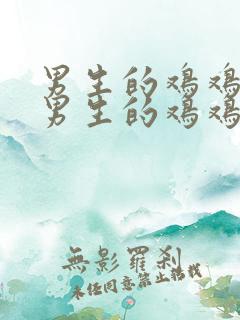 男生的鸡鸡
男生的鸡鸡
無影羅刹
未经同意禁止转载